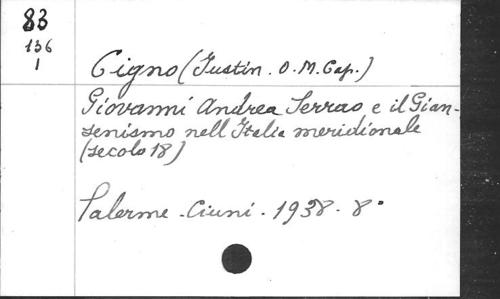 83
136
1
Cigno (Justin. O. M. Cap.)
Giovanni Andrea Serrao e il Gian-
senismo nell'Italia meridionale
(secolo 18)
Palerme - Ciuni - 1938 - 8°